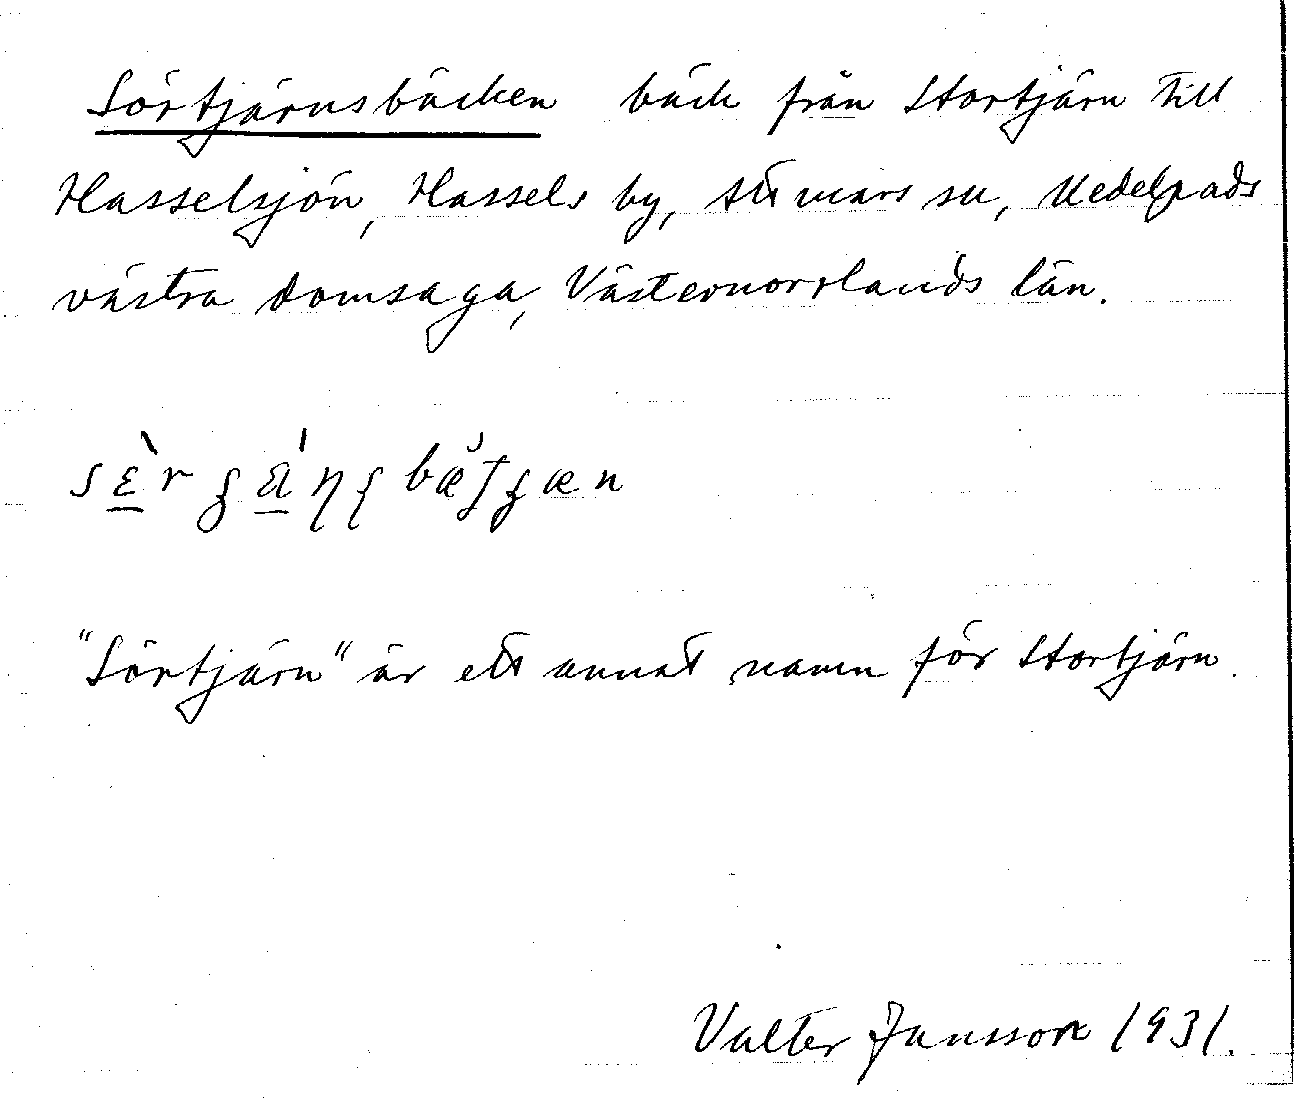 Sörtjärnsbäcken bäck från Stortjärn till
Hasselsjön, Hassels by, Attmars sn, Medelpads
västra domsaga, Västernorrlands län.
"Sörtjärn" är ett annat namn för Stortjärn.
Valter Jansson 1931.